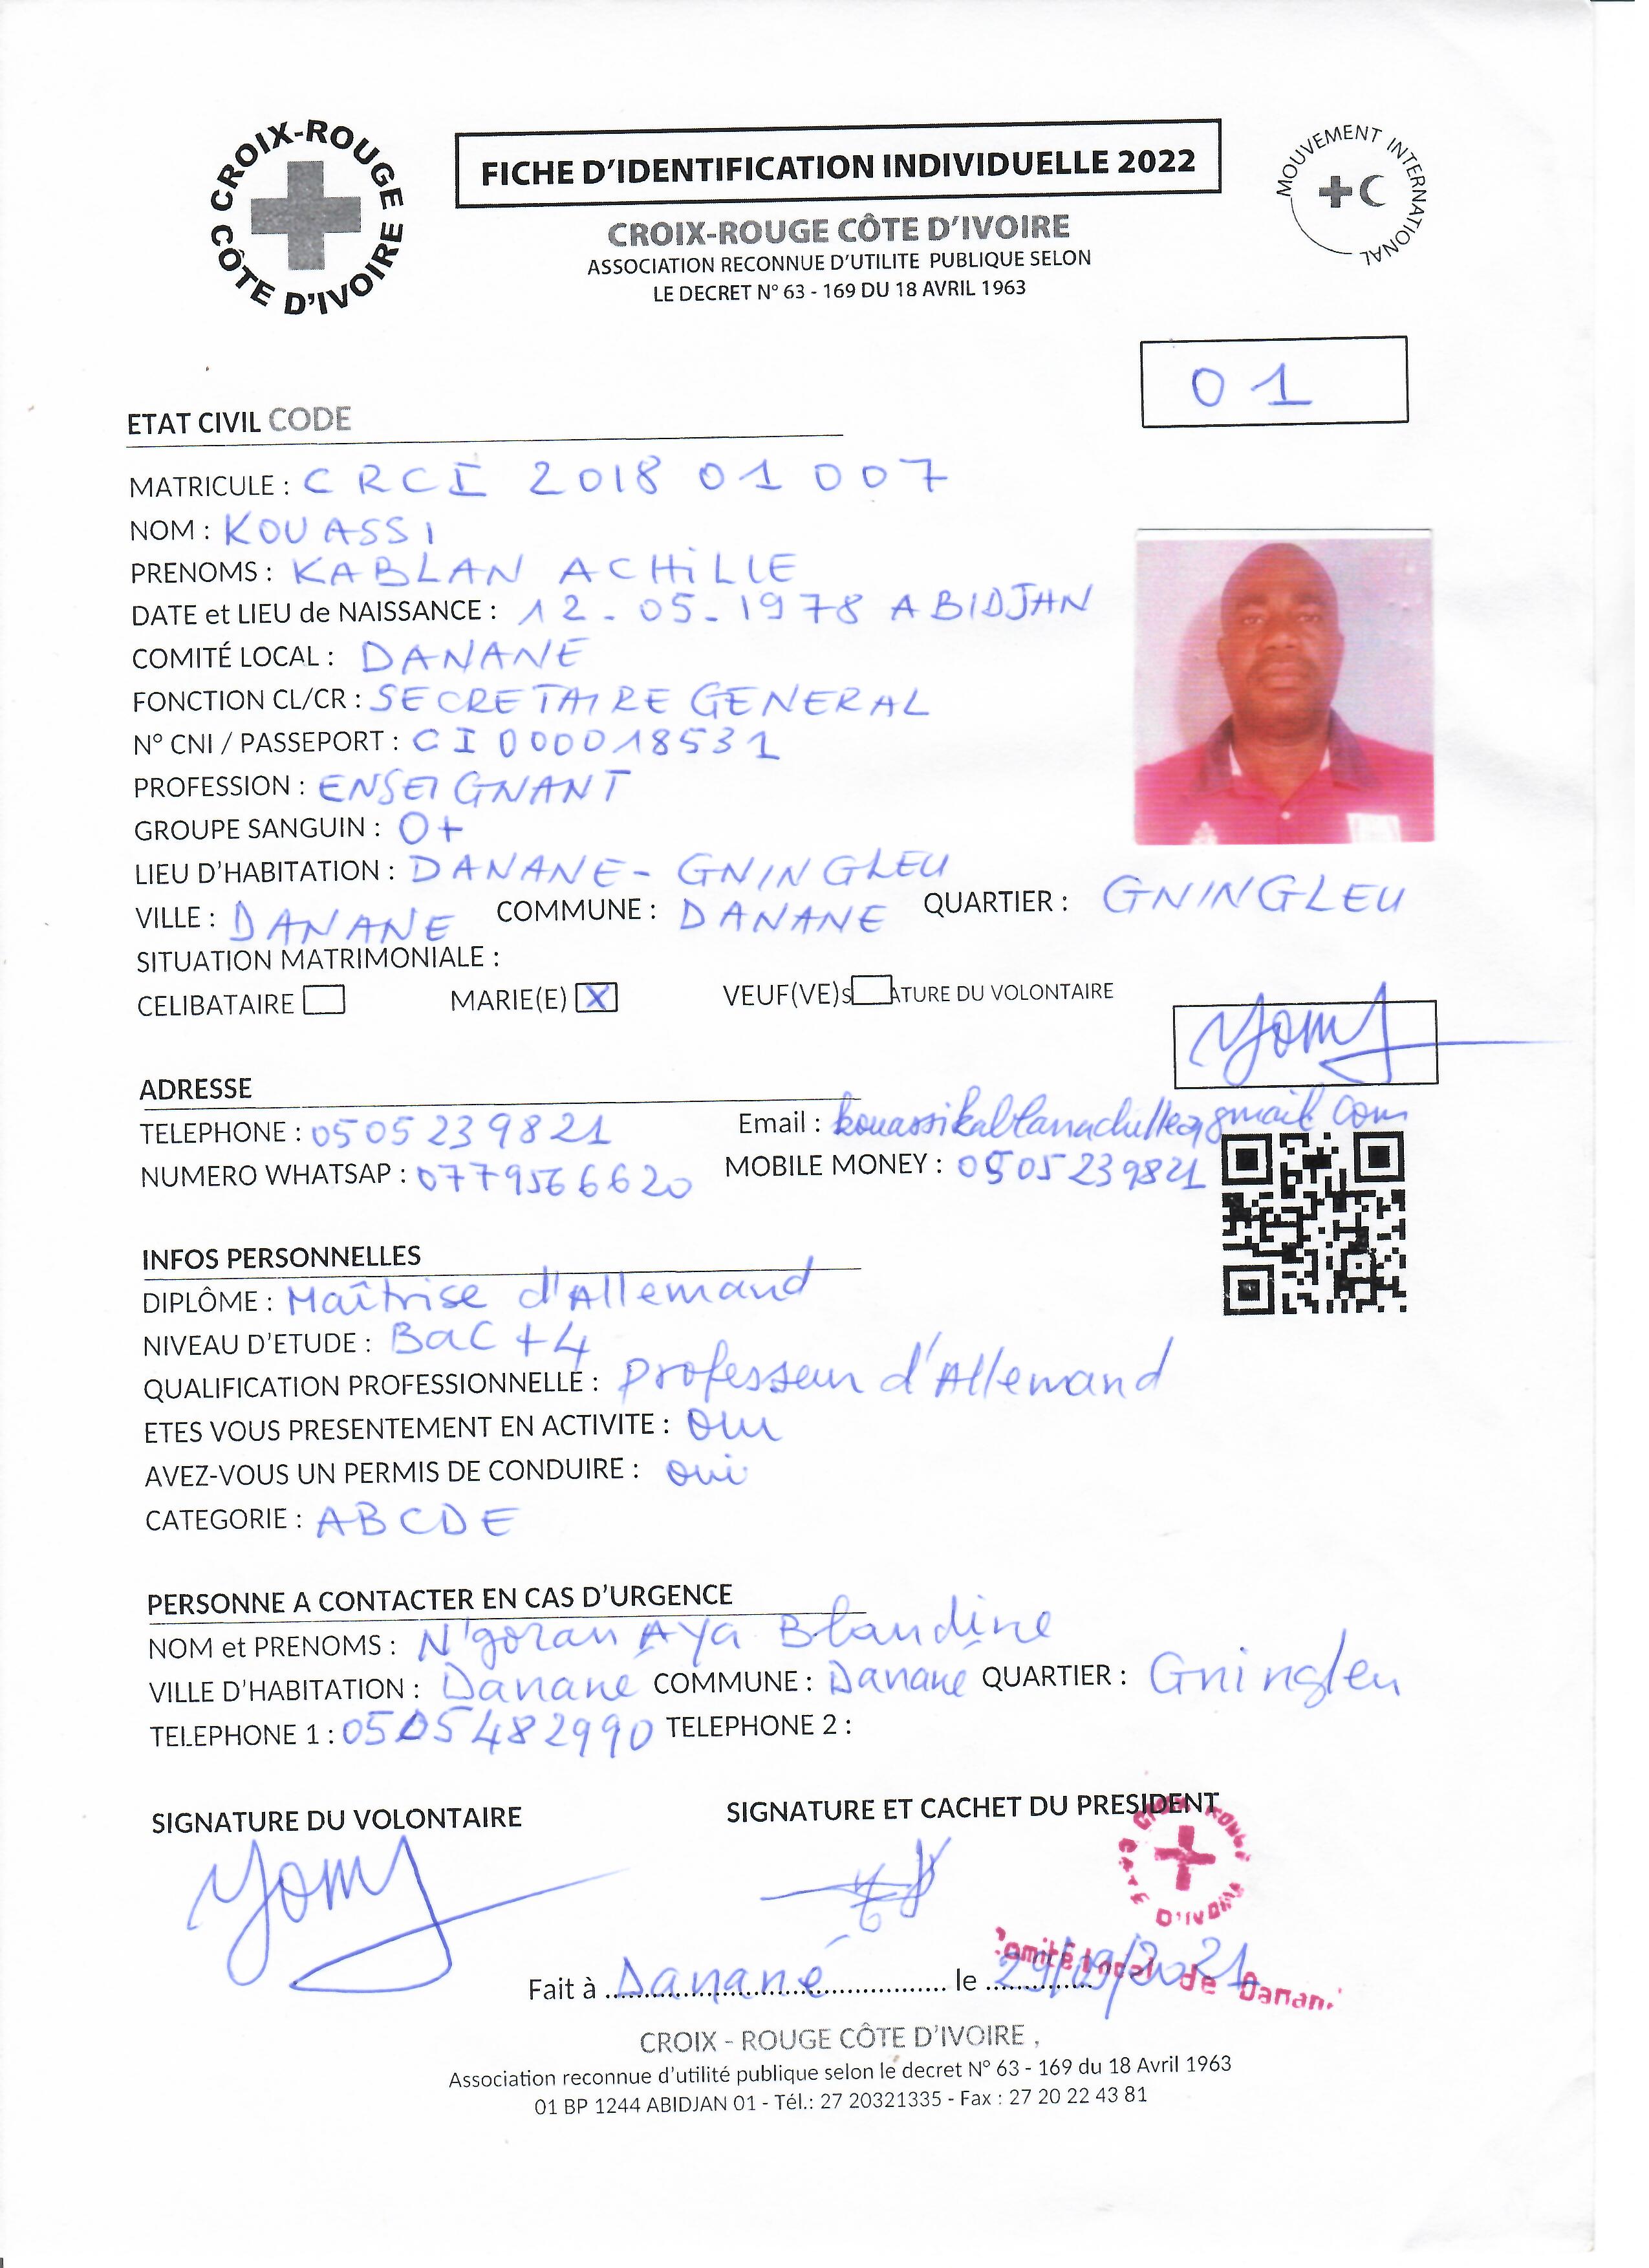 CROIX-ROUGE CÔTE D'IVOIRE
FICHE D'IDENTIFICATION INDIVIDUELLE 2022
MOUVEMENT INTERNATIONAL
CROIX-ROUGE CÔTE D'IVOIRE
ASSOCIATION RECONNUE D'UTILITE PUBLIQUE SELON
LE DECRET N° 63 - 169 DU 18 AVRIL 1963
01
ETAT CIVIL CODE
MATRICULE : CRCI 2018 01 007
NOM : KOUASSI
PRENOMS : KABLAN ACHiLLE
DATE et LIEU de NAISSANCE : 12-05-1978 ABIDJAN
COMITÉ LOCAL : DANANE
FONCTION CL/CR : SECRETAIRE GENERAL
N° CNI / PASSEPORT : CI 000018531
PROFESSION : ENSEIGNANT
GROUPE SANGUIN : O+
LIEU D'HABITATION : DANANE - GNINGLEU
VILLE : DANANE COMMUNE : DANANE QUARTIER : GNINGLEU
SITUATION MATRIMONIALE :
CELIBATAIRE MARIE(E) X VEUF(VE)S ATURE DU VOLONTAIRE
ADRESSE
TELEPHONE : 0505239821 Email : kouassikablanachille@gmail.com
NUMERO WHATSAP : 0779566620 MOBILE MONEY : 0505239821
INFOS PERSONNELLES
DIPLÔME : Maîtrise d'Allemand
NIVEAU D'ETUDE : Bac +4
QUALIFICATION PROFESSIONNELLE : professeur d'Allemand
ETES VOUS PRESENTEMENT EN ACTIVITE : oui
AVEZ-VOUS UN PERMIS DE CONDUIRE : oui
CATEGORIE : ABCDE
PERSONNE A CONTACTER EN CAS D'URGENCE
NOM et PRENOMS : N'goran Aya Blandine
VILLE D'HABITATION : Danané COMMUNE : Danané QUARTIER : Gningleu
TELEPHONE 1 : 0505482990 TELEPHONE 2 :
SIGNATURE DU VOLONTAIRE SIGNATURE ET CACHET DU PRESIDENT
CROIX ROUGE CÔTE D'IVOIRE
Comité Local de Danan
Fait à Danané le 29/09/2021
CROIX - ROUGE CÔTE D'IVOIRE ,
Association reconnue d'utilité publique selon le decret N° 63 - 169 du 18 Avril 1963
01 BP 1244 ABIDJAN 01 - Tél.: 27 20321335 - Fax : 27 20 22 43 81